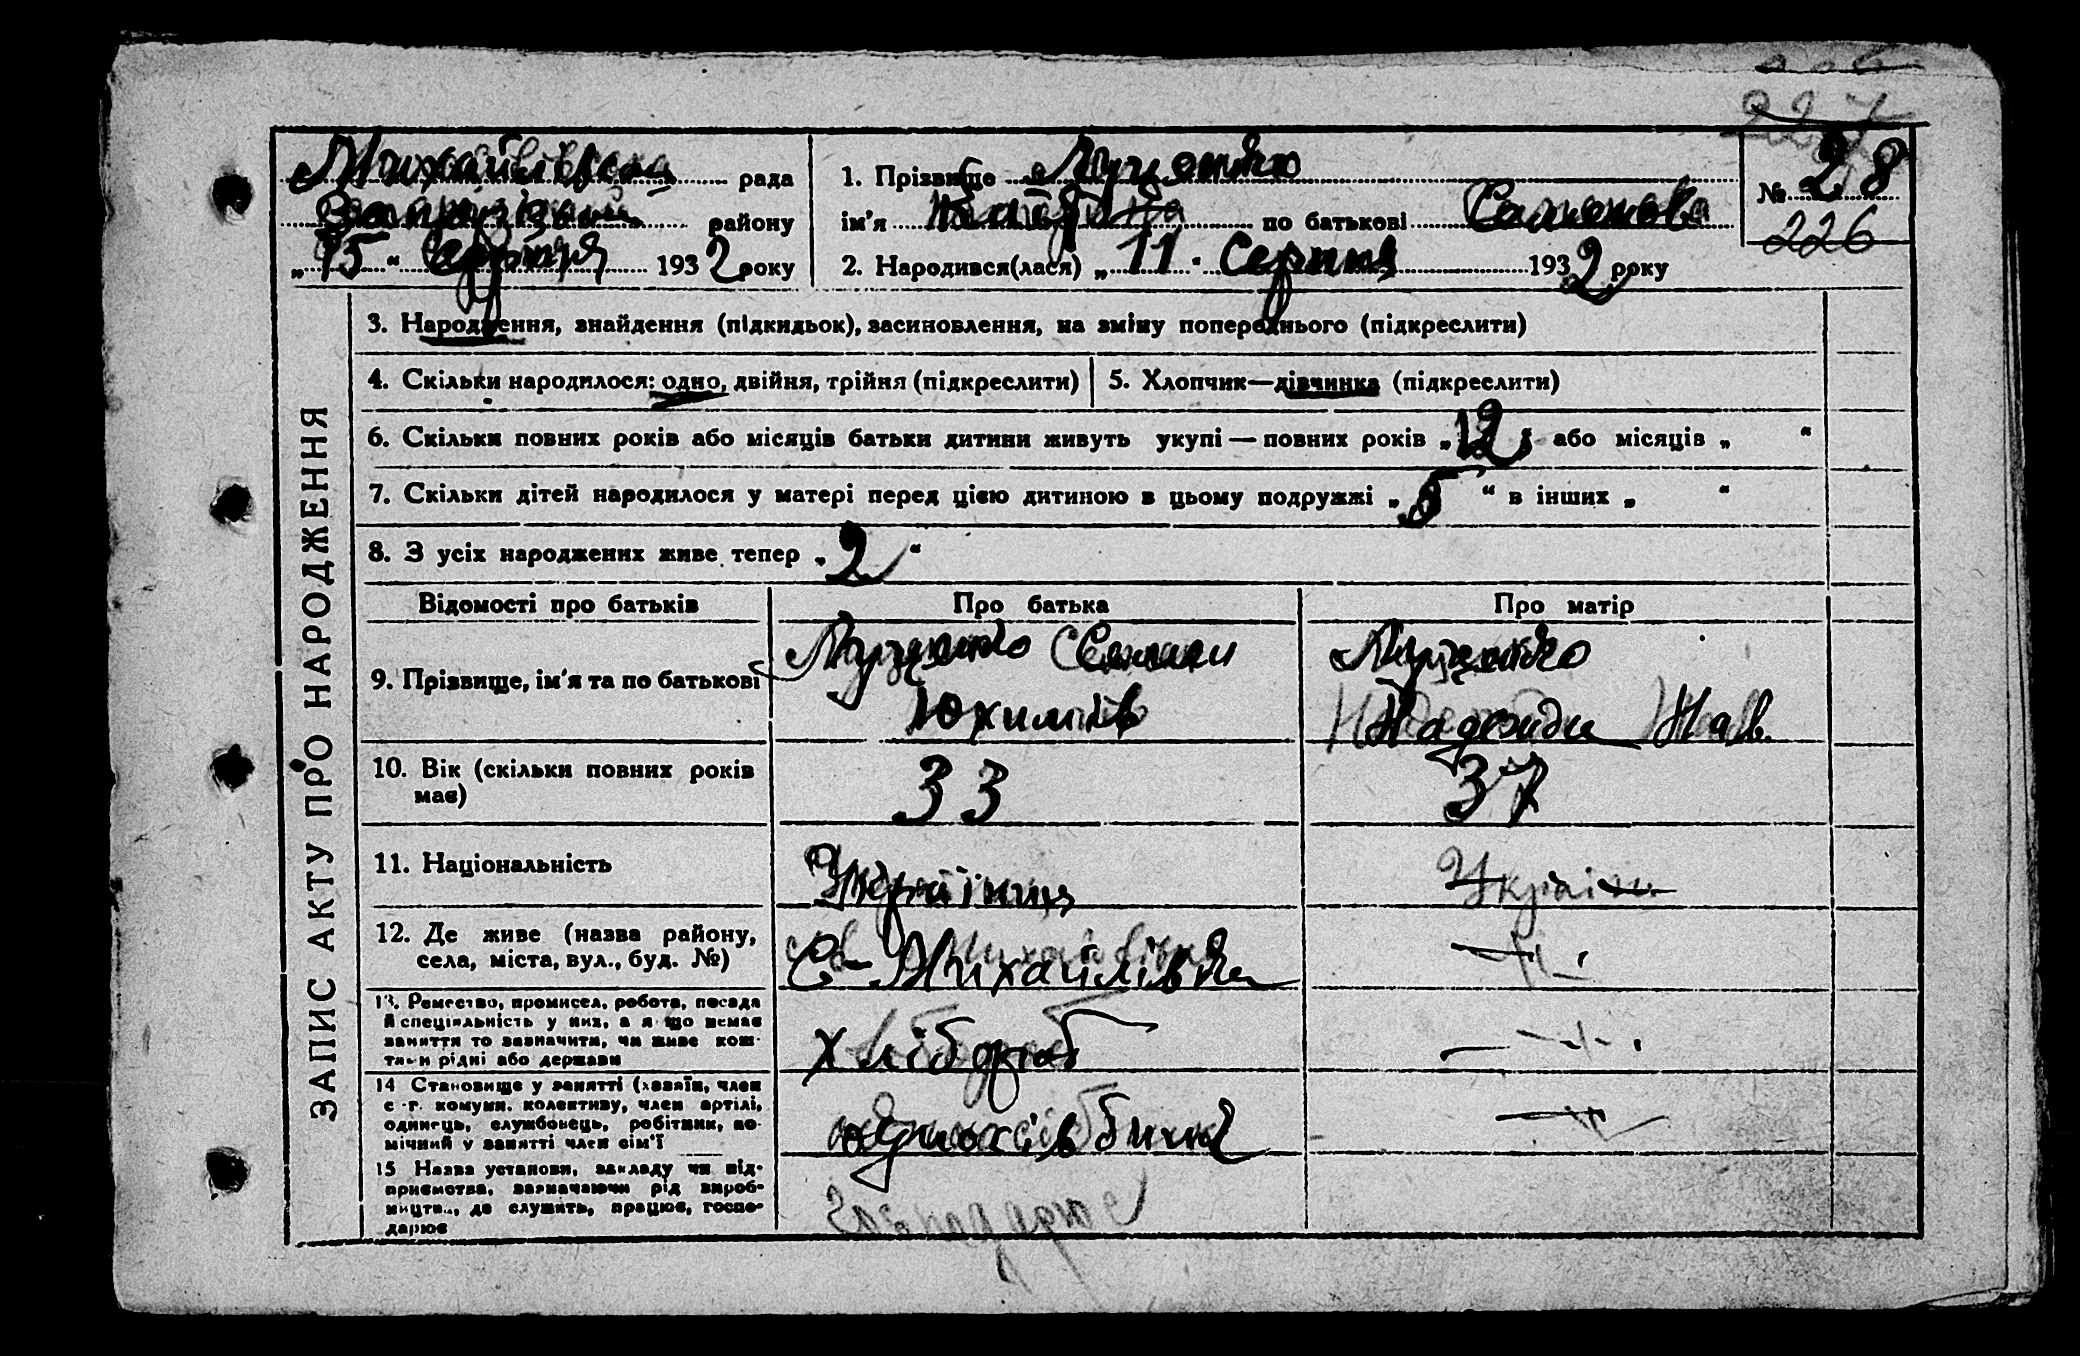 227
Михайлівська рада
району
„15“ Серпня 1932 року
1. Прізвище Луценко
ім’я по батькові Семенова
2. Народився(лася) „11“ Серпня 1932 року
№ 28
226
ЗАПИС АКТУ ПРО НАРОДЖЕННЯ
3. Народження, знайдення (підкидьок), засиновлення, на зміну попереднього (підкреслити)
4. Скільки народилося: одно, двійня, трійня (підкреслити)
5. Хлопчик—дівчинка (підкреслити)
6. Скільки повних років або місяців батьки дитини живуть укупі — повних років „12“ або місяців „ “
7. Скільки дітей народилося у матері перед цією дитиною в цьому подружжі „5“ в інших „ “
8. З усіх народжених живе тепер „2“
Відомості про батьків Про батька Про матір
9. Прізвище, ім’я та по батькові
Луценко Семен
Юхимів
Луценко
Надежда Пав.
10. Вік (скільки повних років
має)
33
37
11. Національність
Українць
Україн
12. Де живе (назва району,
села, міста, вул., буд. №)
С- Михайлівка
13. Ремество, промисел, робота, посада
й спеціяльність у них, а якщо немає
заняття то зазначити, чи живе кош-
тами рідні або держави
хлібороб
14 Становище у занятті (хазяїн, член
с.-г. комуни, колективу, член артілі,
одинець, службовець, робітник, по-
мічний у занятті член сім’ї
одноосібник
15 Назва установи, закладу чи під-
приємства, зазначаючи рід вироб-
ництв., де служить, працює, госпо-
дарює